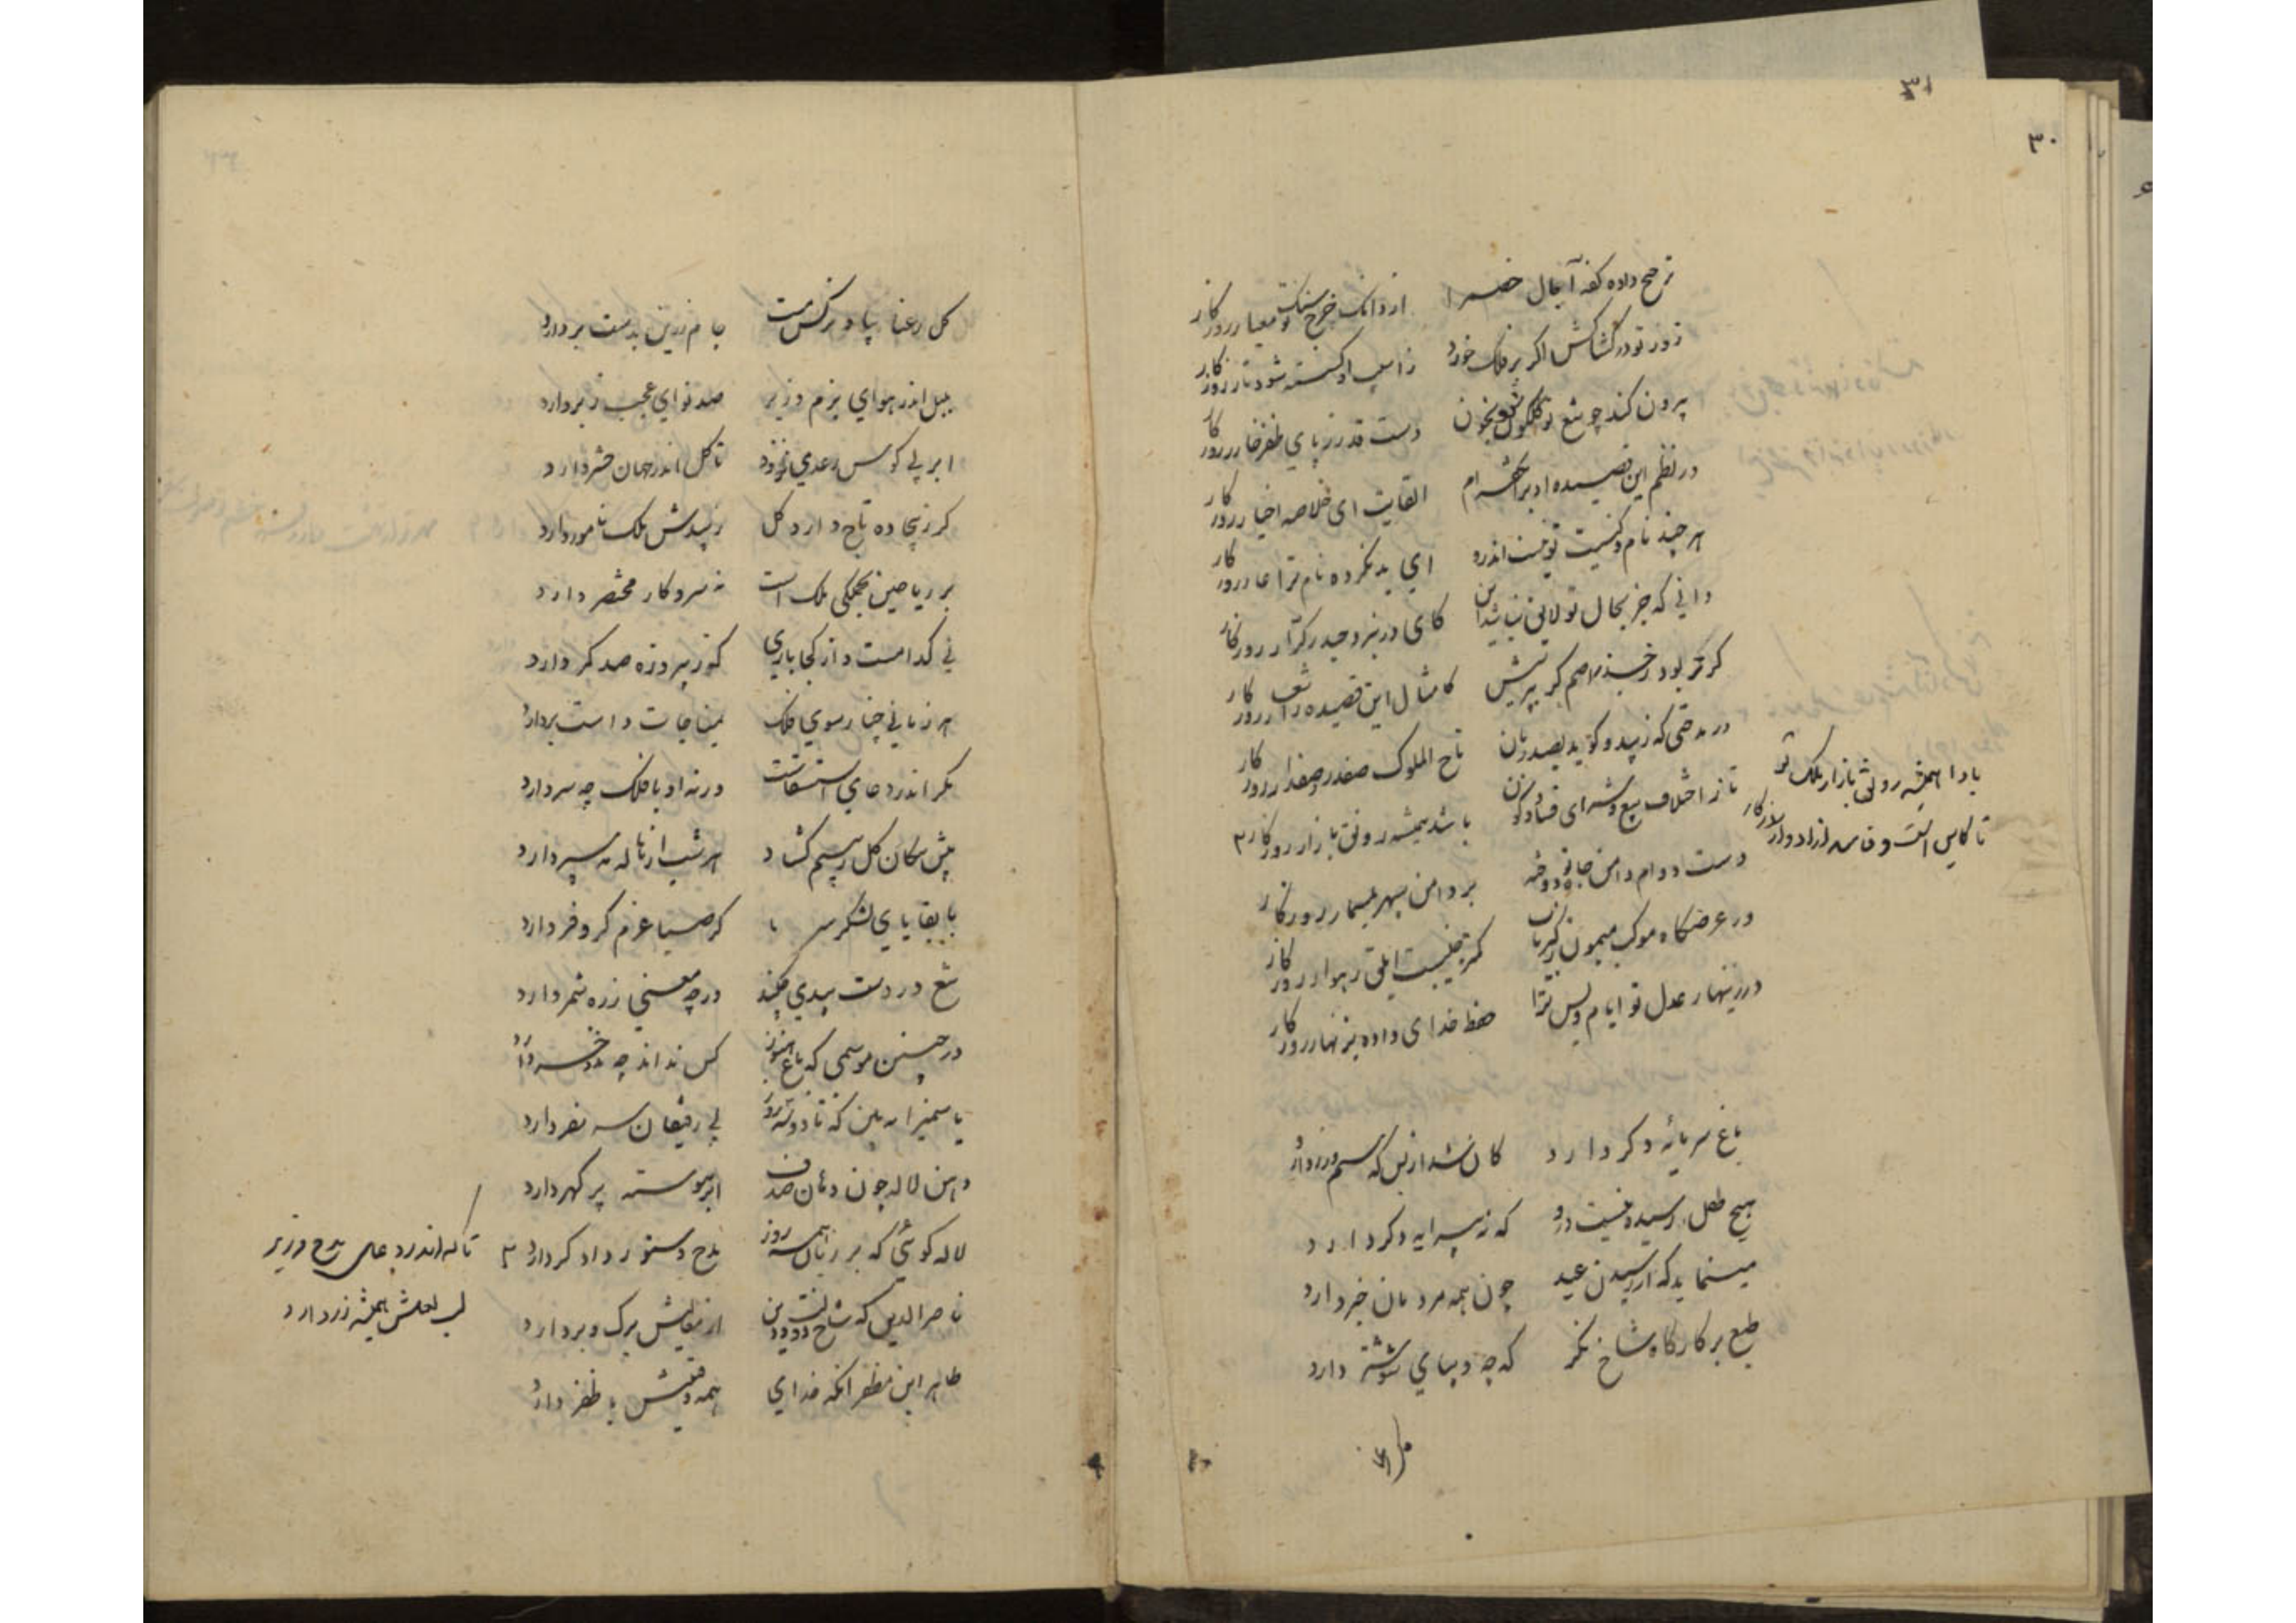 ۳۱
۳۰
ترجیح داده کفه آجال خصم را از دانک خرج سنک و معیار روزکار
زور تو در کشاکش اکر بر فلک خورد ز آسیب او کسسته شود تار روزکار
بیرون کند چو تیغ تو کلکون شود بخون دست قدر ز پای ظفر خار روزکار
در نظم این قصیده ادبرا نخفته ام القابت ای خلاصه اخیار روزکار
هر چند نام و کنیت تو نیست اندرو ای بد نکرده نام ترا عار روزکار
دانی که جز بحال تو لایق نباشد این کای در نبرد حیدر کرار روزکار
کر کر بود رخسند اصم کبر بر تنش کامثال این قصیده ز اشعار روزکار
در مدحتی که زیبد و کوید بصد زبان تاج الملوک صفدر و صفدار روزکار
تا ز اختلاف بیع و شرای فساد و کون باشد همیشه رونق بازار روزکار ۲
بادا همیشه رونق بازار ملک تو
تا کاین است و فاسد از ادوار روزکار
دست دوام دامن جاه تو دوخته بر دامن سپهر بمسمار روزکار
در عرضکاه موکب میمون کبریات کمتر جنیبت ابلق رهوار روزکار
در زینهار عدل تو ایام و بس ترا حفظ خدای داده بزنهار روزکار
باغ سرمایهٔ دکر دارد کان شد از بس که سیم و زر دارد
هیچ طفل رسیده نیست درو که نه پیرایه دکر دارد
مینماید که از رسیدن عید چون همه مردمان خبر دارد
طبع بر کارکاه شاخ نکر که چه دیبای شوشتر دارد
کل رعنا بیاد نرکس مست جام زرین بدست بر دارد
بلبل اندر هوای بزم وزیر صد نوای عجب ز بر دارد
ابر بی کوس رعد می نرود تا کل اندر جهان حشر دارد
کر ز بیجاده تاج دارد کل زیبدش ملک نامور دارد
بر ریاحین بجملکی ملک است نه سر و کار مختصر دارد
نی کدامست و از کجا باری کو ز پیروزه صد کمر دارد
هر زمانی چنار سوی فلک بمناجات دست بر دارد
مکر اندر دعای استسقاست ورنه او با فلک چه سر دارد
پیش پیکان کل ز بیم کشاد هر شب از هاله مه سپر دارد
با بقایای لشکر سرما کر صبا عزم کر و فر دارد
تیغ در دست بید می چکند ورچه معنی زره شمر دارد
در چنین موسمی که باغ هنوز کس نداند چه ما حضر دارد
یاسمین را ببین که تا دو سه روز بی رفیقان سر سفر دارد
دهن لاله چون دهان صدف ابر پیوسته پر کهر دارد
لاله کوئی که بر زبان همه روز مدح دستور دادکر دارد ۲
تا که اندر دعای مدح وزیر
لب لعلش همیشه تر دارد
ناصر الدین که شاخ دولت و دین از نمایش برک و بر دارد
طاهر ابن مظفر آنکه خدای همه وقتیش با ظفر دارد